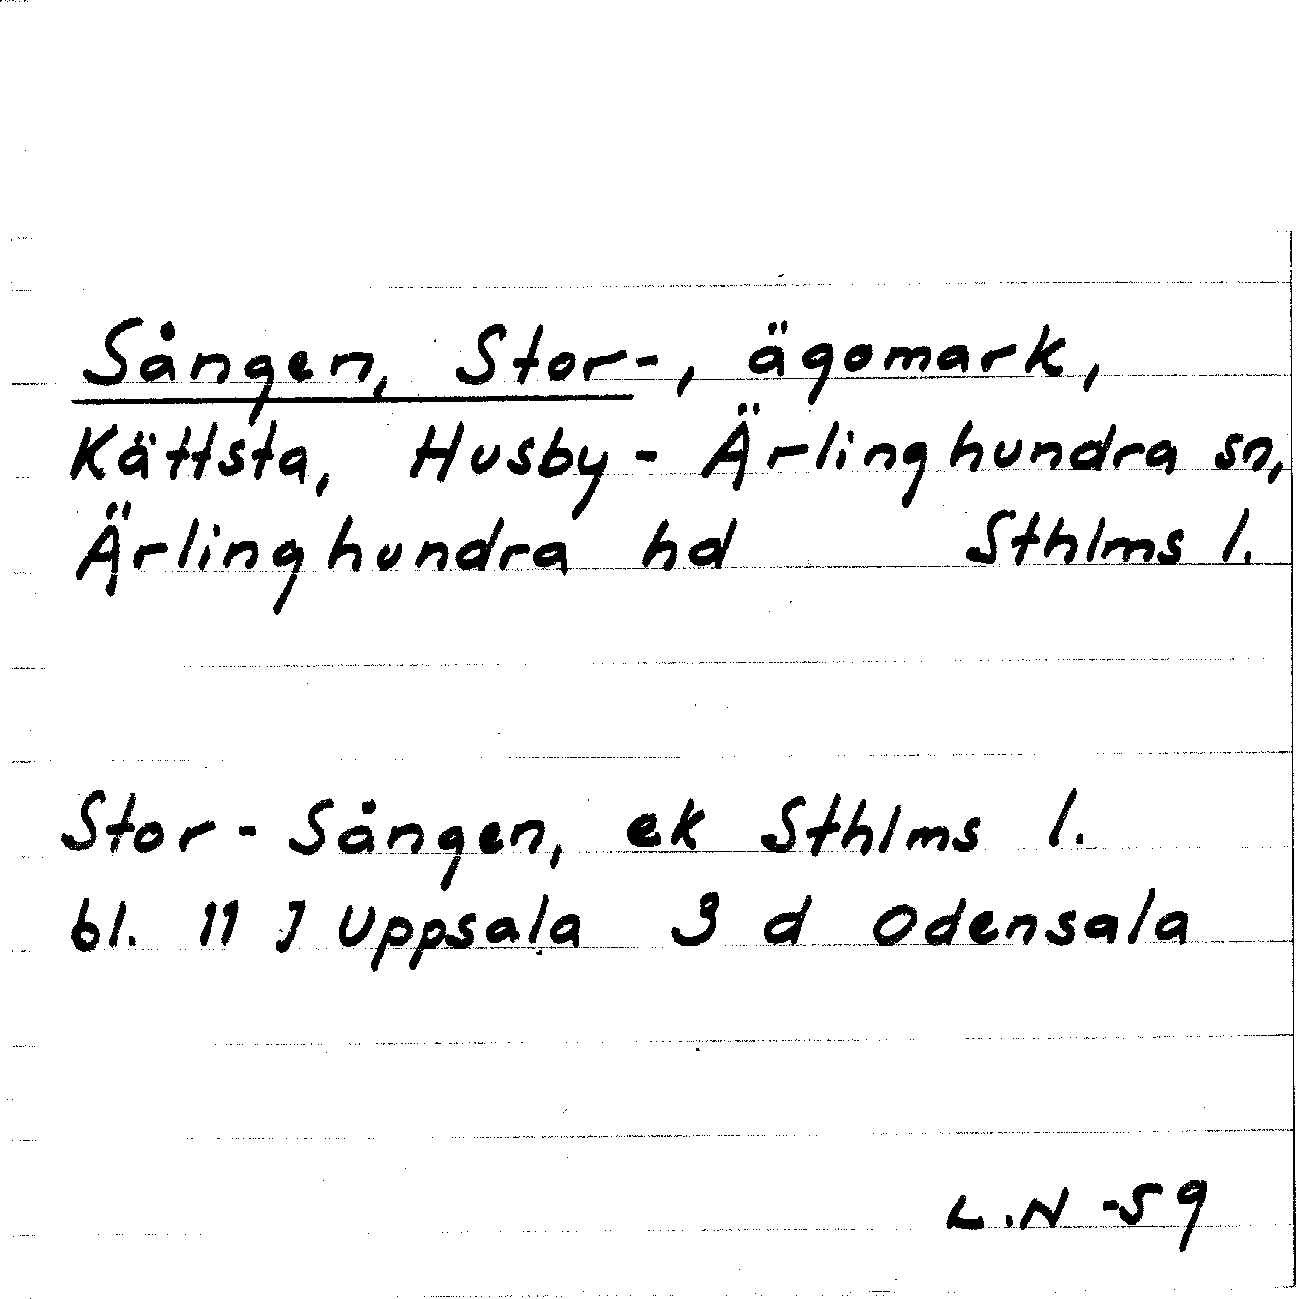 Sången, Stor-, ägomark,
Kättsta, Husby - Ärlinghundra sn,
Ärlinghundra hd Sthlms l.
Stor - Sången, ek Sthlms l.
bl. 11 J Uppsala 3 d Odensala
L.N -59